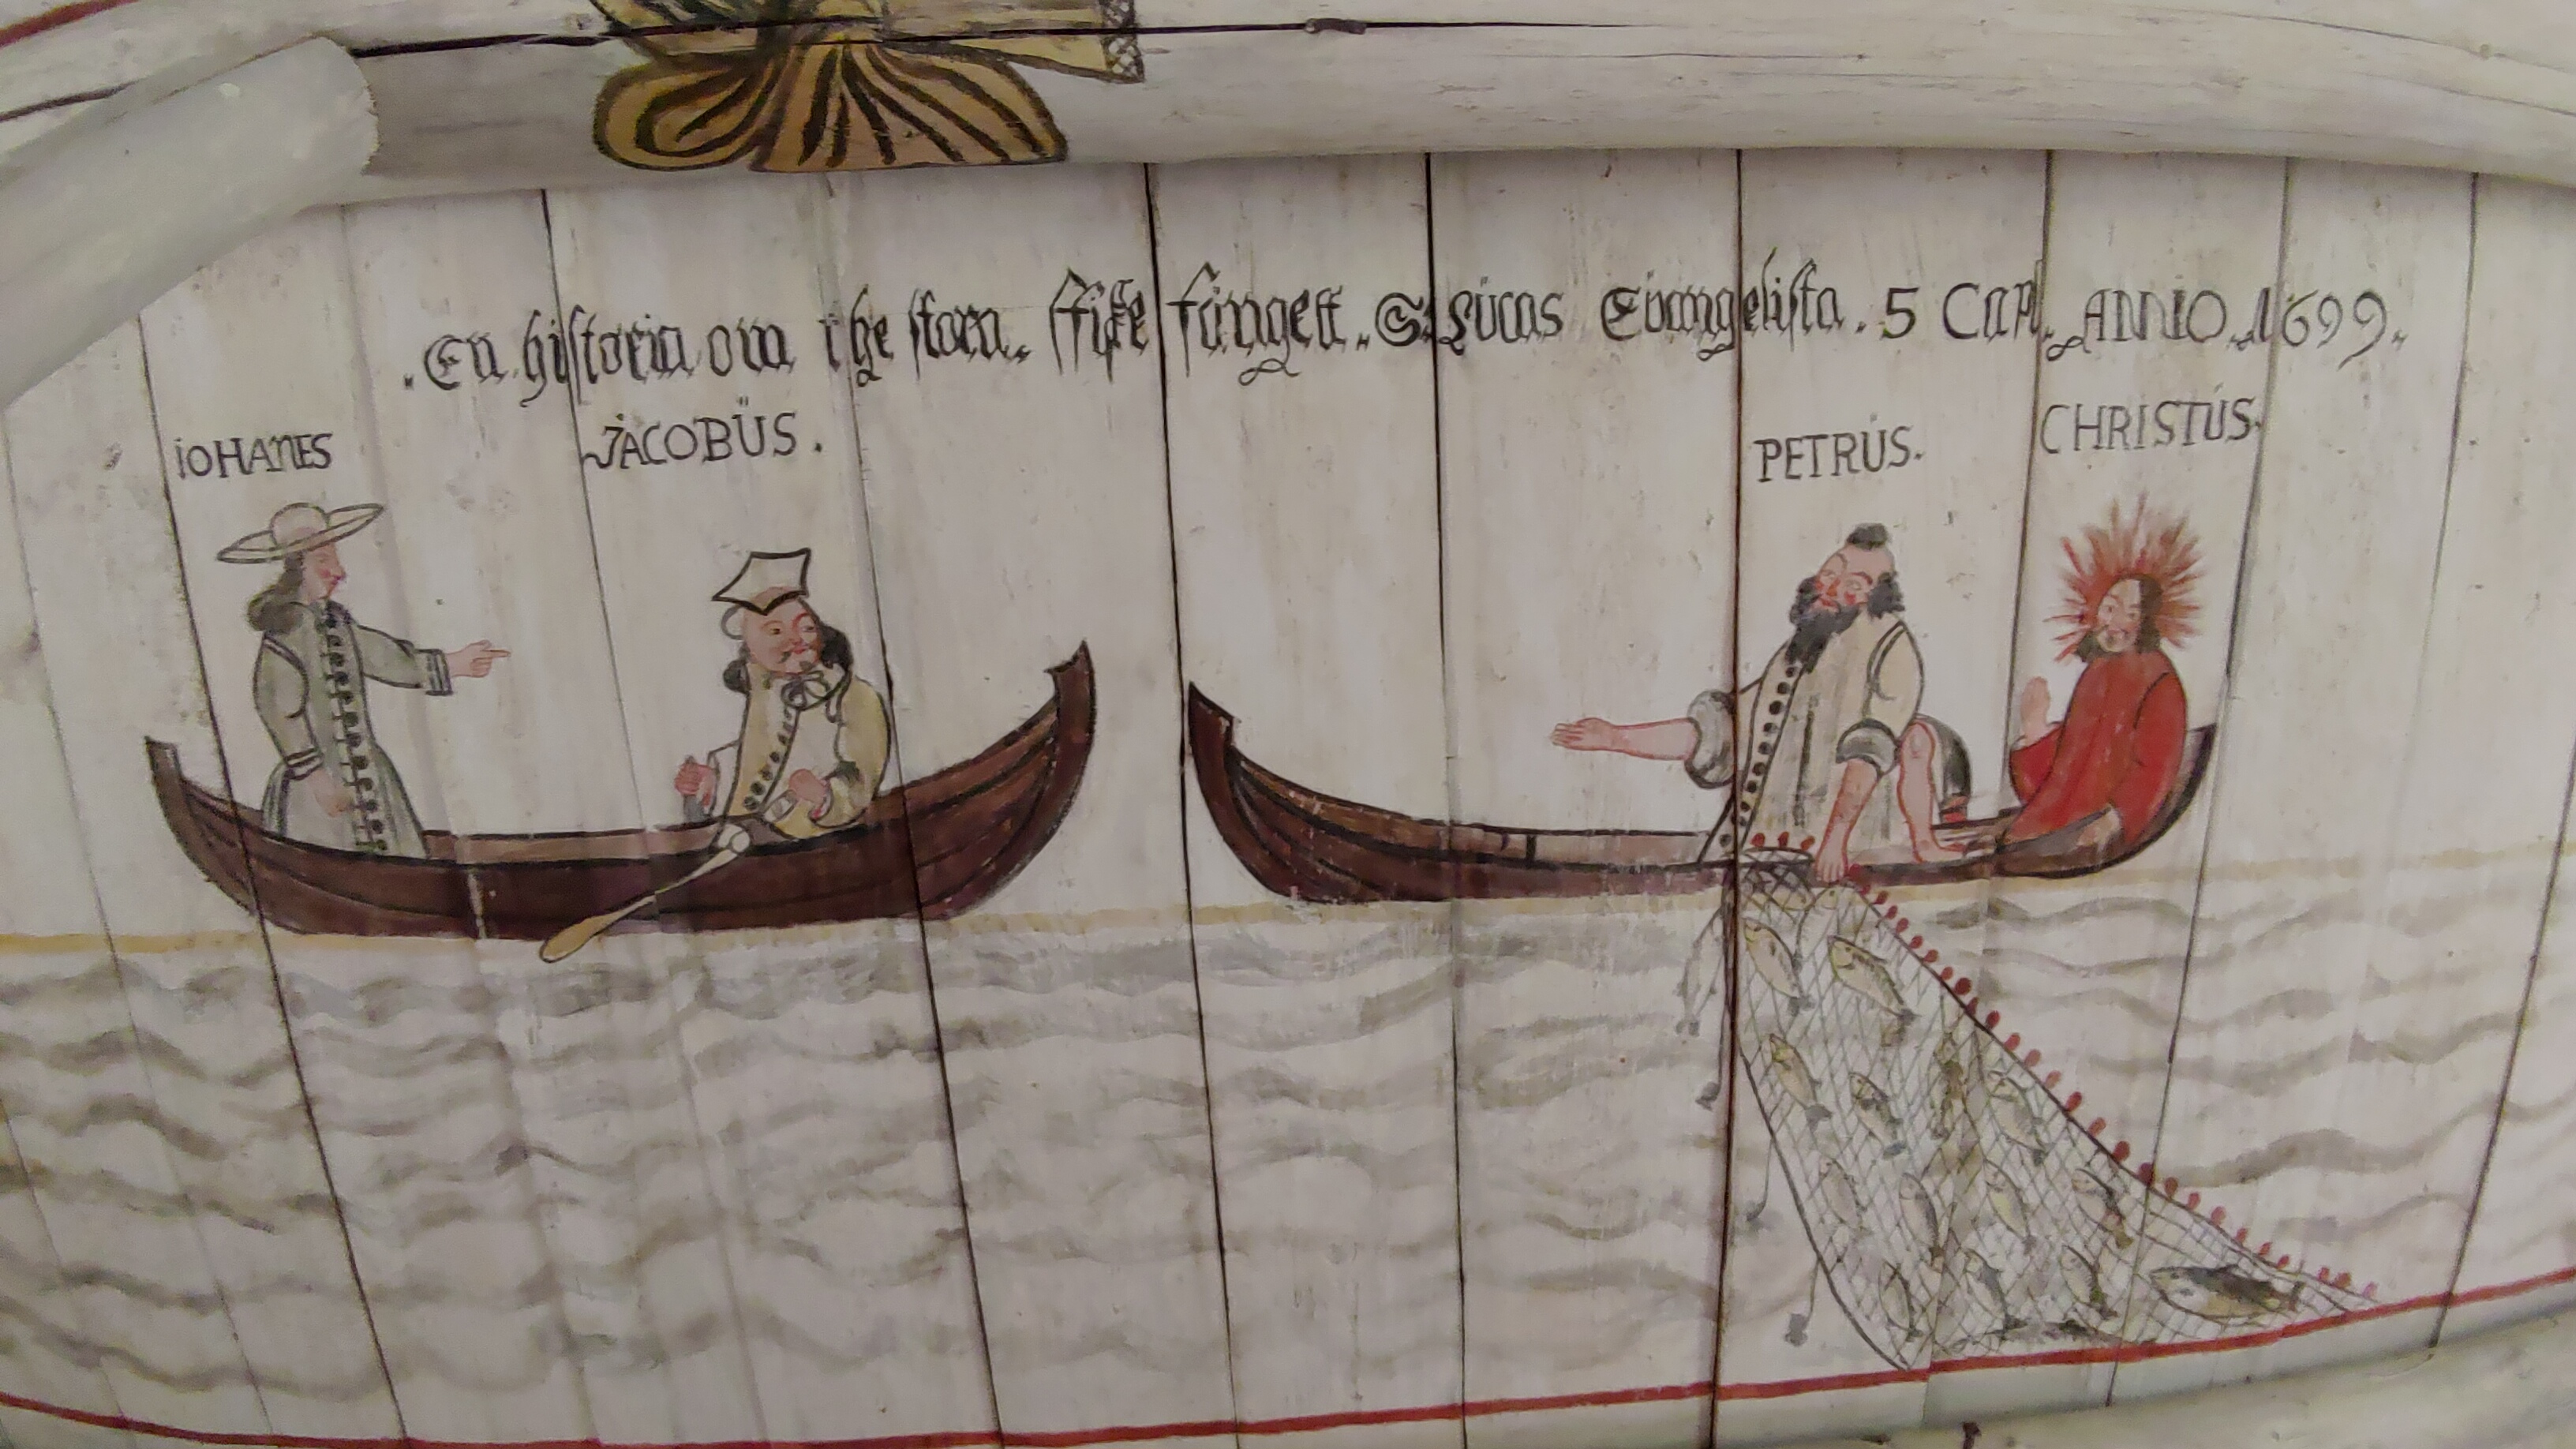 . En historia om the stora. ffiske fånget. S. Lúcas Evangelista. 5 CAP. ANNIO. 1699.
iOHANES JACOBÜS. PETRÚS. CHRISTÚS.